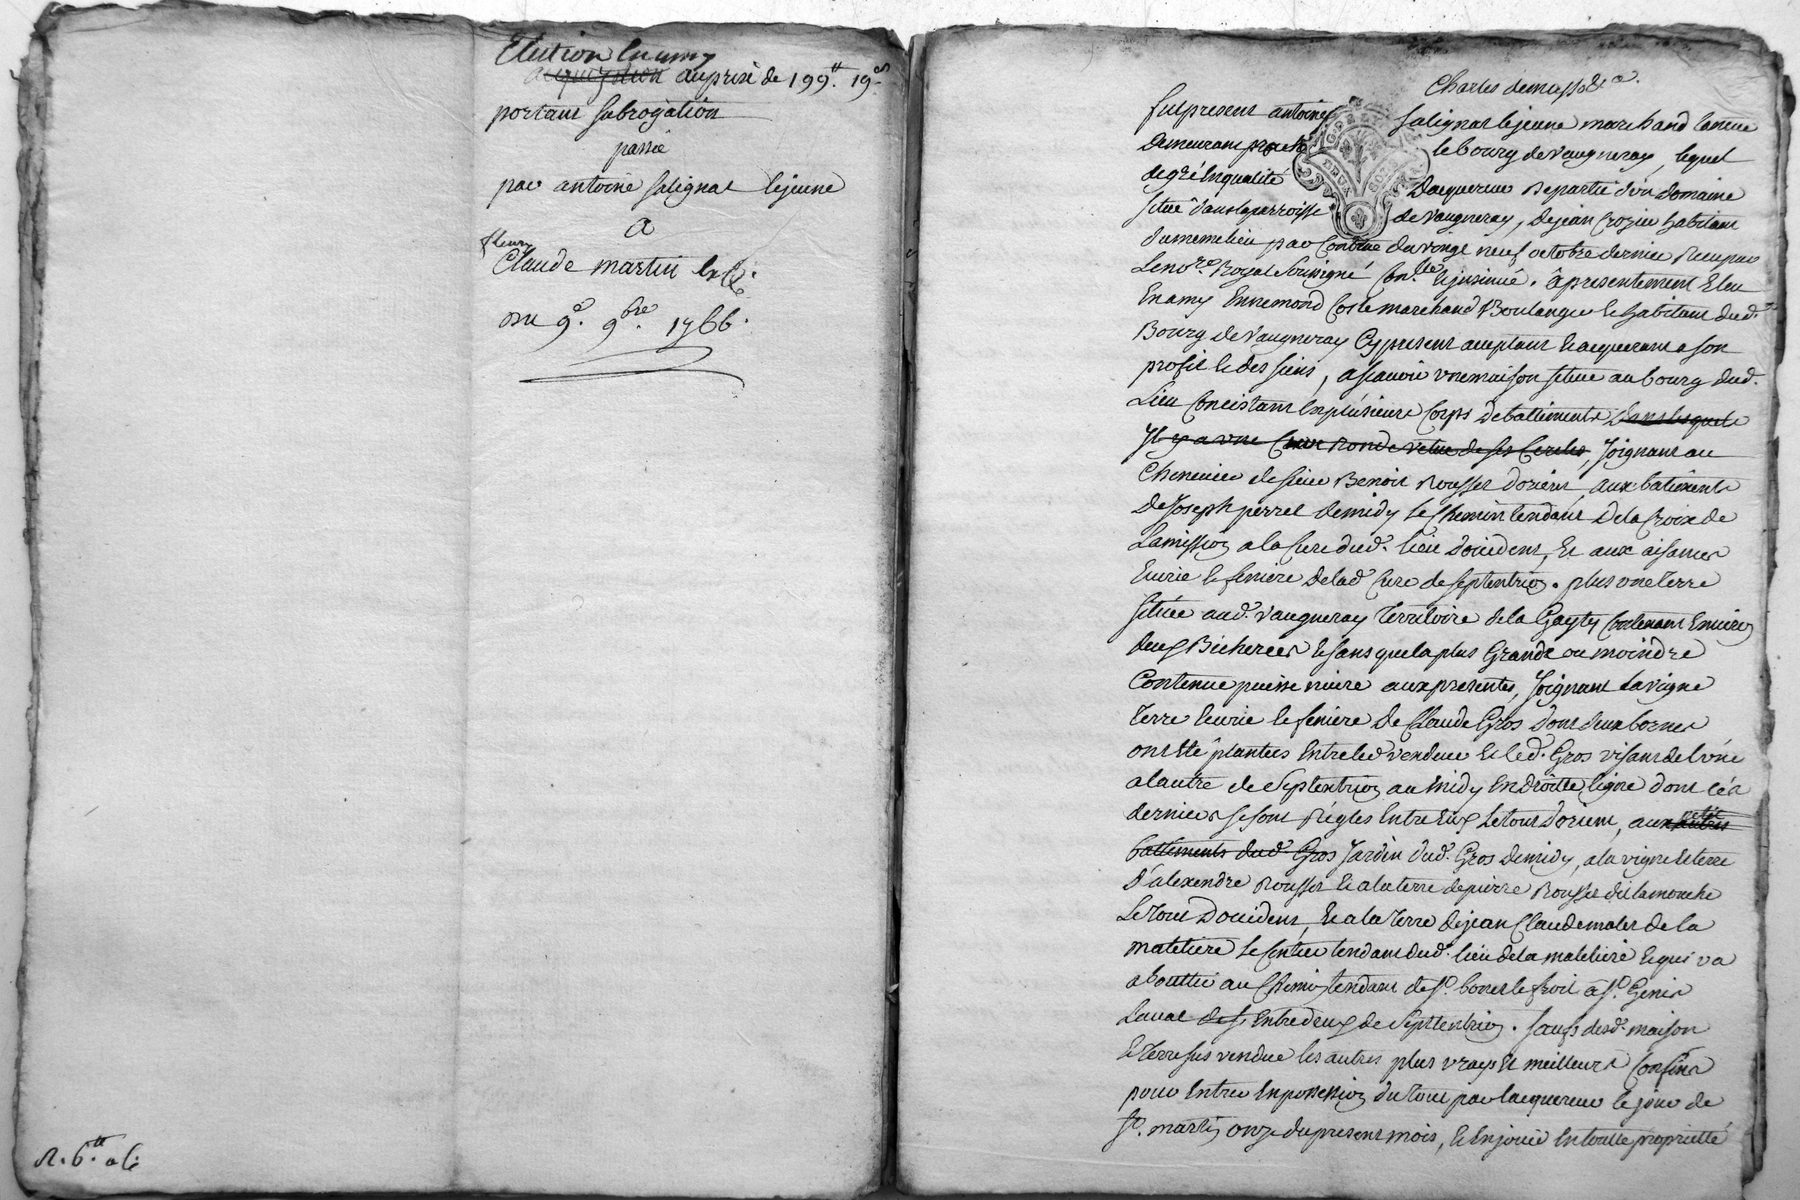 Election en amy
acquizition au prix de 199tt. 19s
portant subrogation
passée
par antoine salignat lejeune
a
fleury
Claude martin
du 9e. 9bre. 1766.
R. 6tt.
Charles
fut present antoine salignat lejeune marchand taneur
demeurant proche le bourg de vaugneray, lequel
de gré en qualité d'acquereur de partie d'un domaine
situé dans la parroisse de vaugneray, de jean crozier habitant
du meme lieu par Contrat du vingt neuf octobre dernier Receu par
le nore. Royal soussigné Conlle. & jnsinué. a presentement Eleu
En amy Ennemond Coste marchand Boulanger & habitant dud.
Bourg de vaugneray Cy present acceptant & acquerant a son
profit & des siens, a scavoir vne maison située au bourg dud.
Lieu Concistant En plusieurs Corps de battiments dans lesquels
Jl y a vne Cuve Ronde vetue de ses Cercles, Joignant au
de sieur Benoit Rousset d'orient, aux batiments
de Joseph perret de midy le Chemin tendant de la Croix de
La mission a la Cure dud. lieu d'occident, & aux aisances
Ecurie & feniere de lad. Cure de septentrion. plus vne terre
située aud. vaugneray Territoire de la Contenant Environ
deux Bicherées & sans que la plus Grande ou moindre
Contenue puisse nuire aux presentes, Joignant la vigne
terre Ecurie & feniere de Claude Gros dont deux bornes
ont eté plantées Entre led vendeur & led. Gros visant de l'vne
a l'autre de septentrion au midy En droitte ligne dont ces
derniers se sont Réglés Entre Eux le tout d'orient, aux
battiments dud. Gros Jardin dud. Gros de midy, a la vigne & terre
d'alexendre Rousset & a la terre de pierre Rousset dit la mouche
le tout d'occident, & a la terre de jean Claude de la
matetiere le sentier tendant dud. lieu de la matetiere & qui va
aboutir au Chemin tendant de St. bonet le froit a St. Genis
Laval Entredeux de septentrion. sauf desd. maison
& terre sus vendue les autres plus vrays & meilleurs Confins
pour Entrer En possession du tout par l'acquereur le jour de
St. martin onze du present mois, & En jouir En toutte proprietté